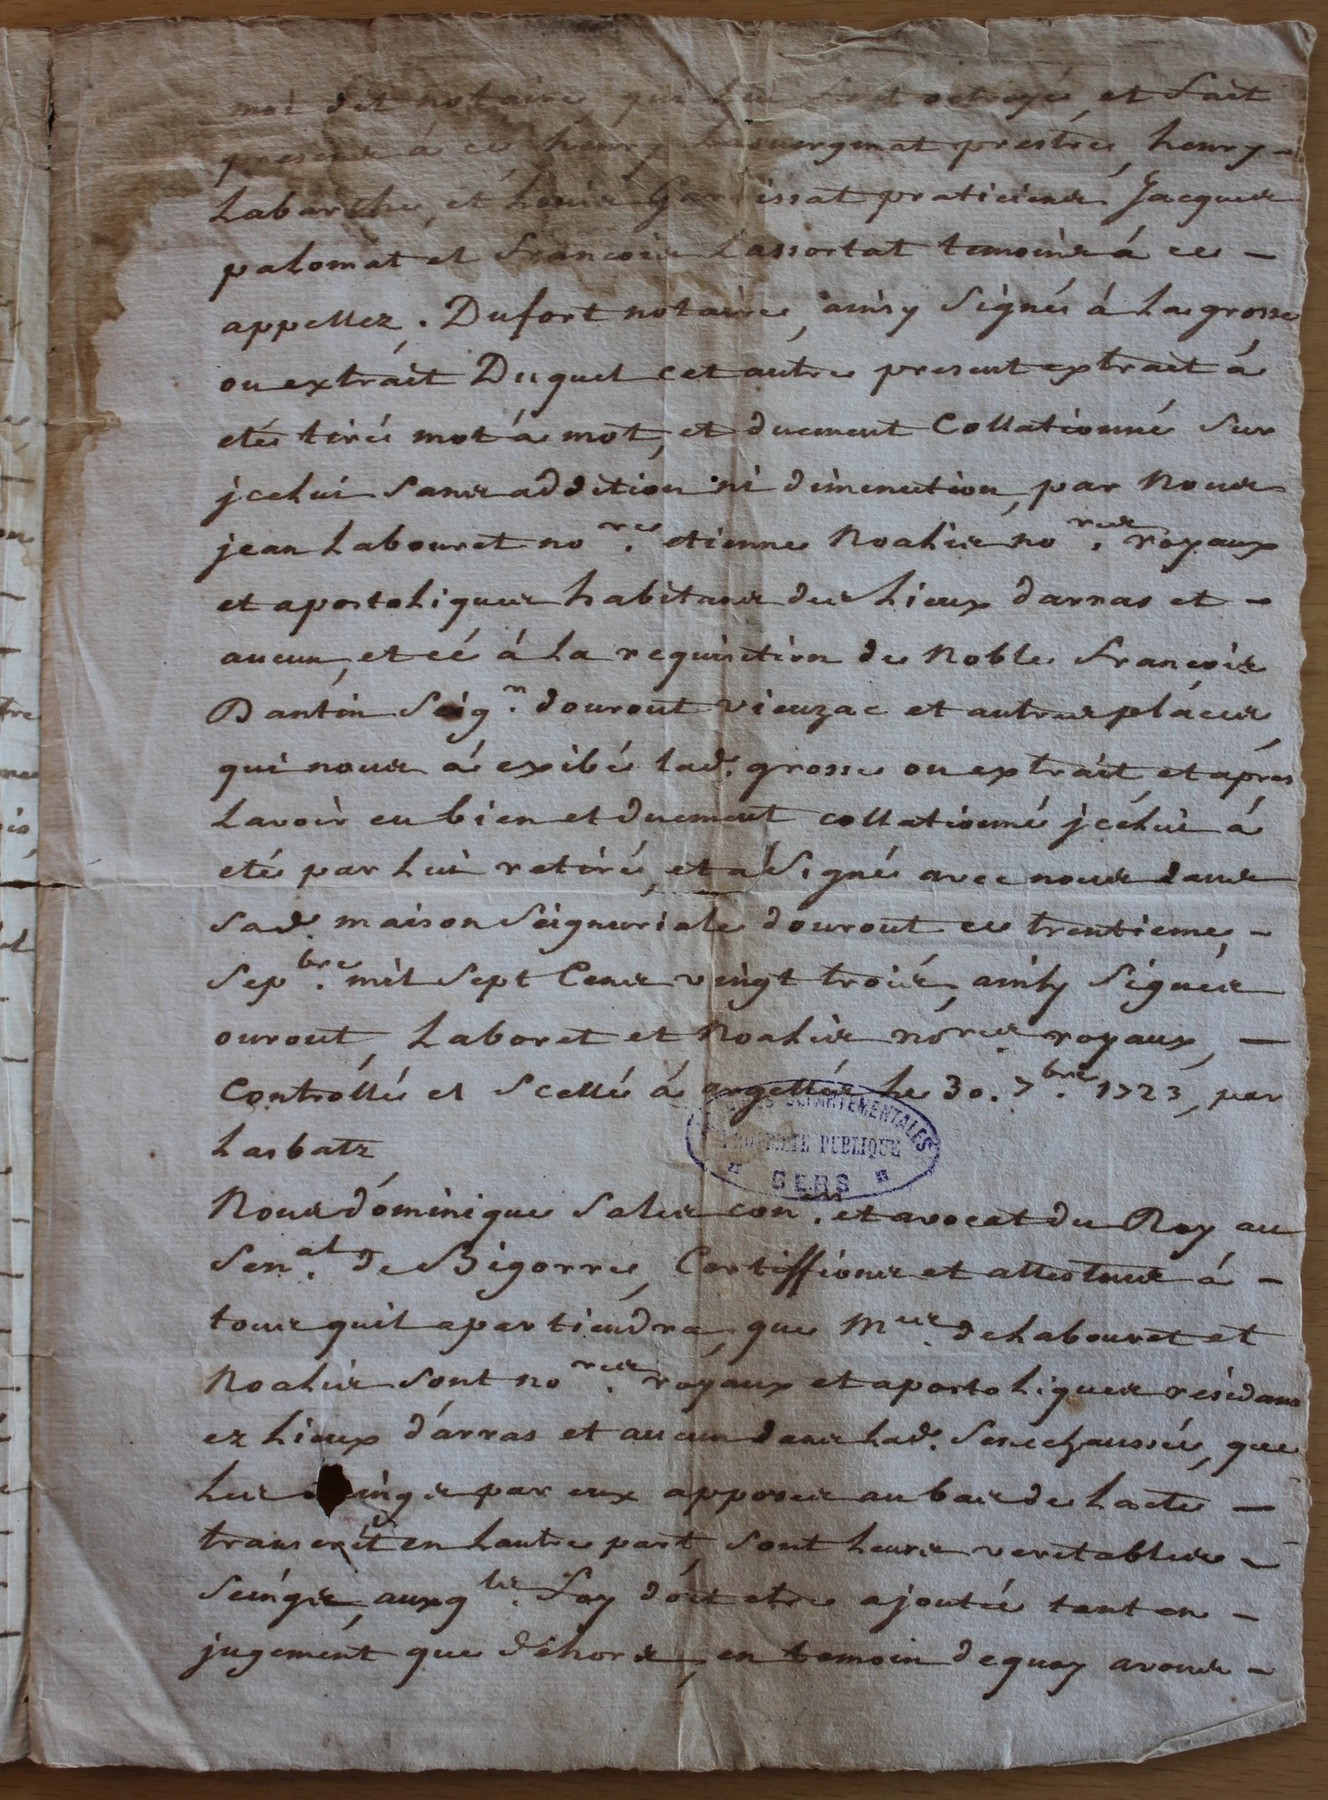 moi dit notaire qui lui octroyé et fait
presens á ce henry prestre, henry -
Labarthe, et Louis issat praticiens Jacques
palomat et francois Lassortat temoins á ce -
appellez. Dufort notaire, ainsy signé á la grosse
ou extrait Duquel cet autre present extrait á
eté tiré mot á mot, et duement Collationné sur
jcelui sans addition ni diminution, par Nous
jean Labouret no.re etienne Noalis no.res royaux
et apostoliques habitans des Lieux darras et -
aucun, et cé á la requisition de Noble françois
Dantin Seig.r dourout vieuzac et autres pláces
qui nous á exibé lad. grosse ou extrait, et aprés
Lavoir eu bien et duement collationné jcélui á
eté par Lui retiré, et á signé avec nous dans
sad. maison seigneuriale dourout ce trentieme, -
Sep.bre mil sept Cens vingt trois, ainsy signés
ourout, Laboret et Noalis nó.res royaux, -
Controllé et Scellé á argellés le 30. 7.bre 1723, par
Lasbatz
ARCHIVES DEPARTEMENTALES
PROPRIETE PUBLIQUE
GERS
Nous dóminique Sales con.er et avocat du Roy au
Sen.al de Bigorre, Certiffions et attestons á -
tous quil apartiendra, que M.es de Labouret et
Noalis sont no.res royaux et apostoliques résidans
ez Lieux dárras et aucun dans Lad. Senechaussée, que
Les seings par eux apposés au bas de Lacte -
transcrit en Lautre part, sont Leurs veritables -
Seings, auxq.ls foy doit etre ajoutée tant en -
jugement que déhors, en temoin dequoy avons -